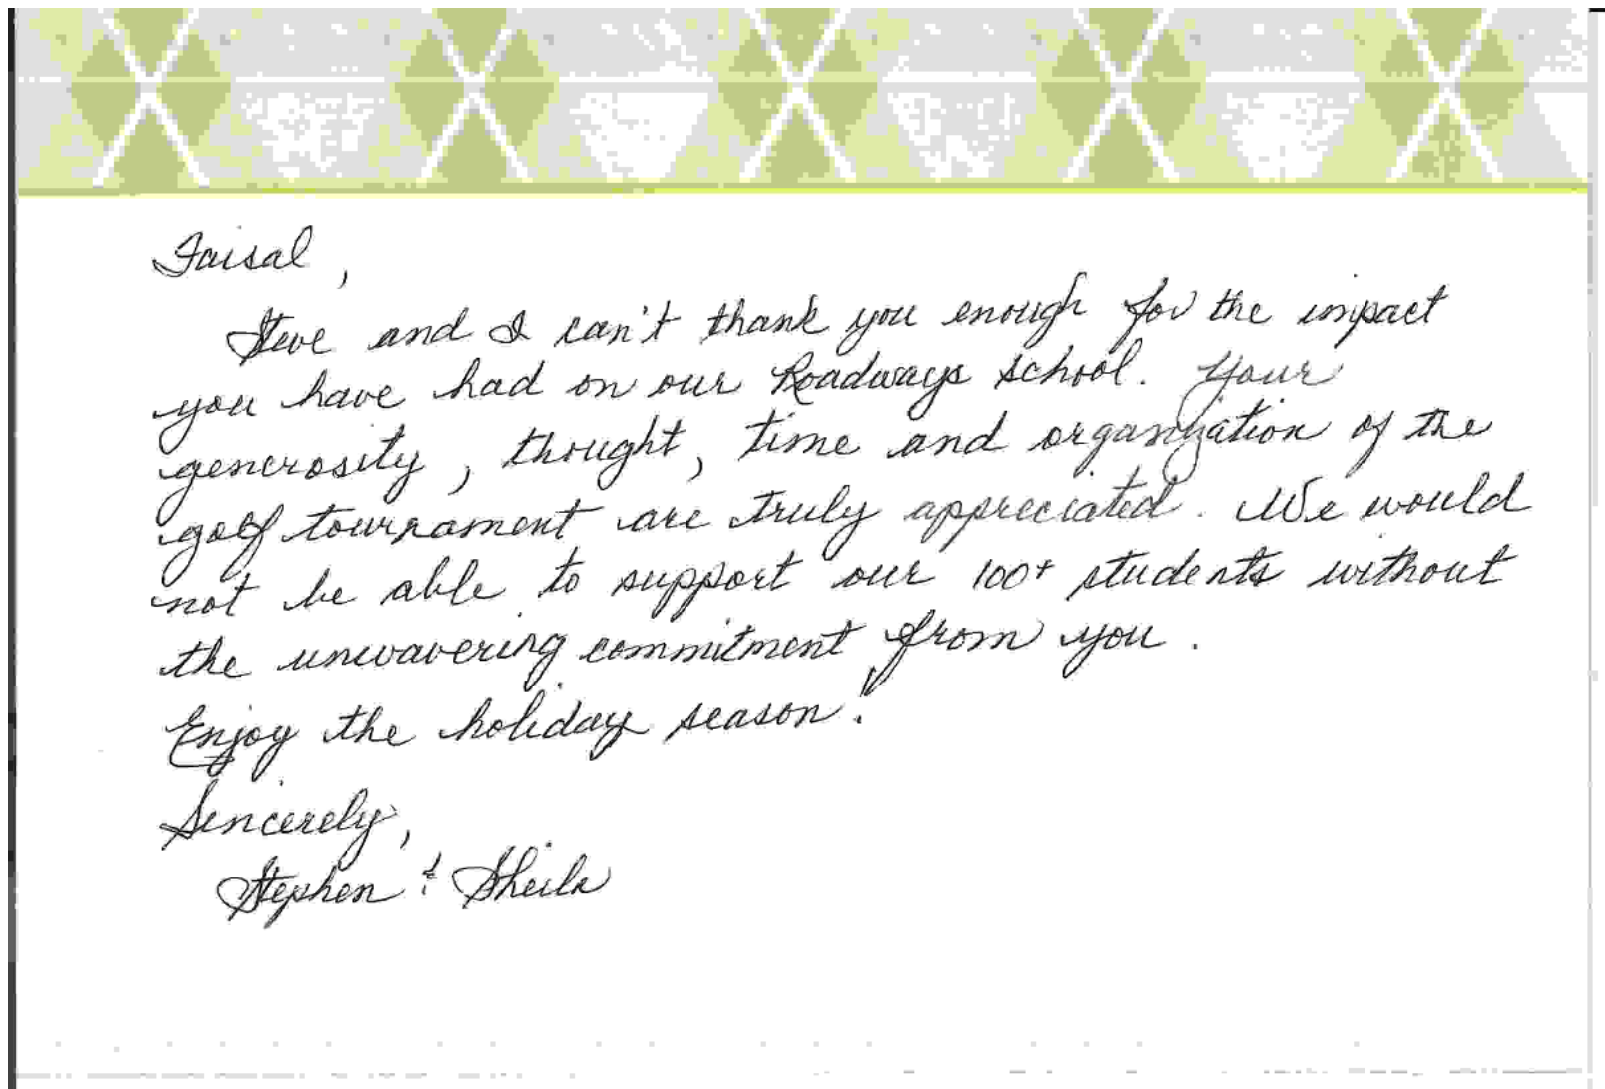 Faisal,
Steve and I can't thank you enough for the impact
you have had on our Roadways school. Your
generosity, thought, time and organization of the
golf tournament are truly appreciated. We would
not be able to support our 100+ students without
the unwavering commitment from you.
Enjoy the holiday season!
Sincerely,
Stephen & Sheila